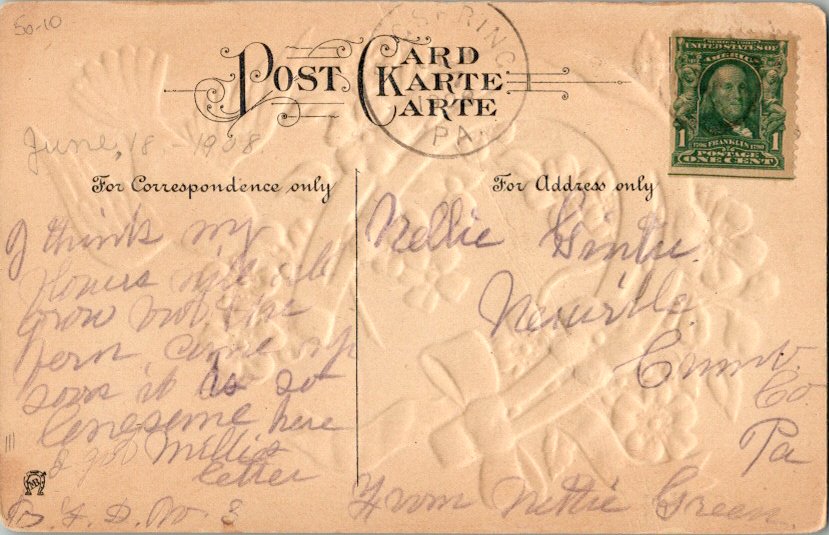 50-10
POST CARD
KARTE
CARTE
SPRING
PA
UNITED STATES OF
AMERICA
1 1706 FRANKLIN 1790 1
POSTAGE
ONE CENT
June, 18 - 1908
For Correspondence only
I think my
flowers will all
grow not the
fern, came up
soon it is so
lonesome here
I got Millies
letter
R. F. D. No. 3
For Address only
Nellie
Newville
Cumb.
Co
Pa
From Nettie Green